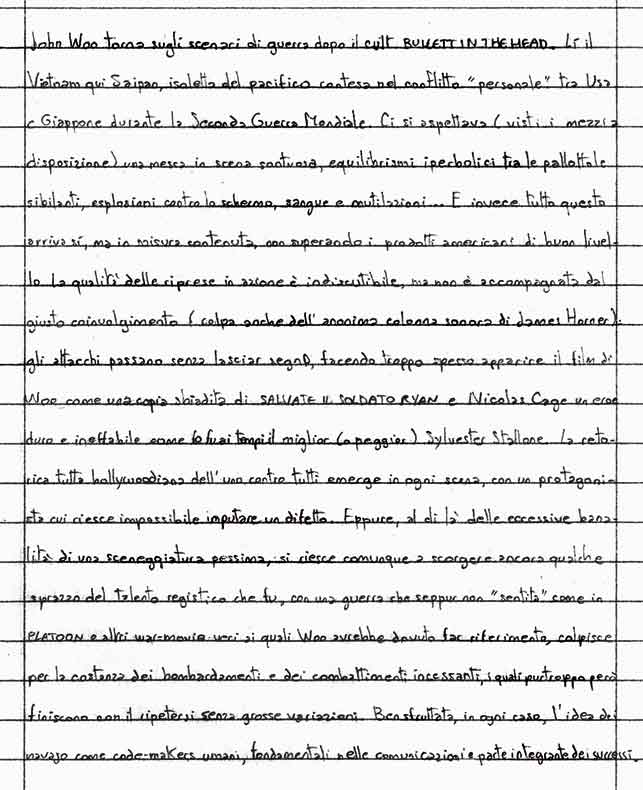 John Woo torna sugli scenari di guerra dopo il cult BULLETT IN THE HEAD. Lì il
Vietnam qui Saipan, isoletta del pacifico contesa nel conflitto "personale" tra Usa
e Giappone durante la Seconda Guerra Mondiale. Ci si aspettava (visti i mezzi a
disposizione) una messa in scena sontuosa, equilibrismi iperbolici tra le pallottole
sibilanti, esplosioni contro lo schermo, sangue e mutilazioni... E invece tutto questo
arriva sí, ma in misura contenuta, non superando i prodotti americani di buon livel-
lo. La qualità delle riprese in azione è indiscutibile, ma non è accompagnata dal
giusto coinvolgimento (colpa anche dell'anonima colonna sonora di James Horner):
gli attacchi passano senza lasciar segno, facendo troppo spesso apparire il film di
Woo come una copia sbiadita di SALVATE IL SOLDATO RYAN e Nicolas Cage un eroe
duro e ineffabile come lo fu ai tempi il miglior (o peggior) Sylvester Stallone. La reto-
rica tutta hollywoodiana dell'uno contro tutti emerge in ogni scena, con un protagoni-
sta cui riesce impossibile imputare un difetto. Eppure, al di là delle eccessive bana-
lità di una sceneggiatura pessima, si riesce comunque a scorgere ancora qualche
sprazzo del talento registico che fu, con una guerra che seppur non "sentita" come in
PLATOON e altri war-movie veri ai quali Woo avrebbe dovuto far riferimento, colpisce
per la costanza dei bombardamenti e dei combattimenti incessanti, i quali purtroppo però
finiscono con il ripetersi senza grosse variazioni. Ben sfruttata, in ogni caso, l'idea dei
navajo come code-makers umani, fondamentali nelle comunicazioni e parte integrante dei successi.